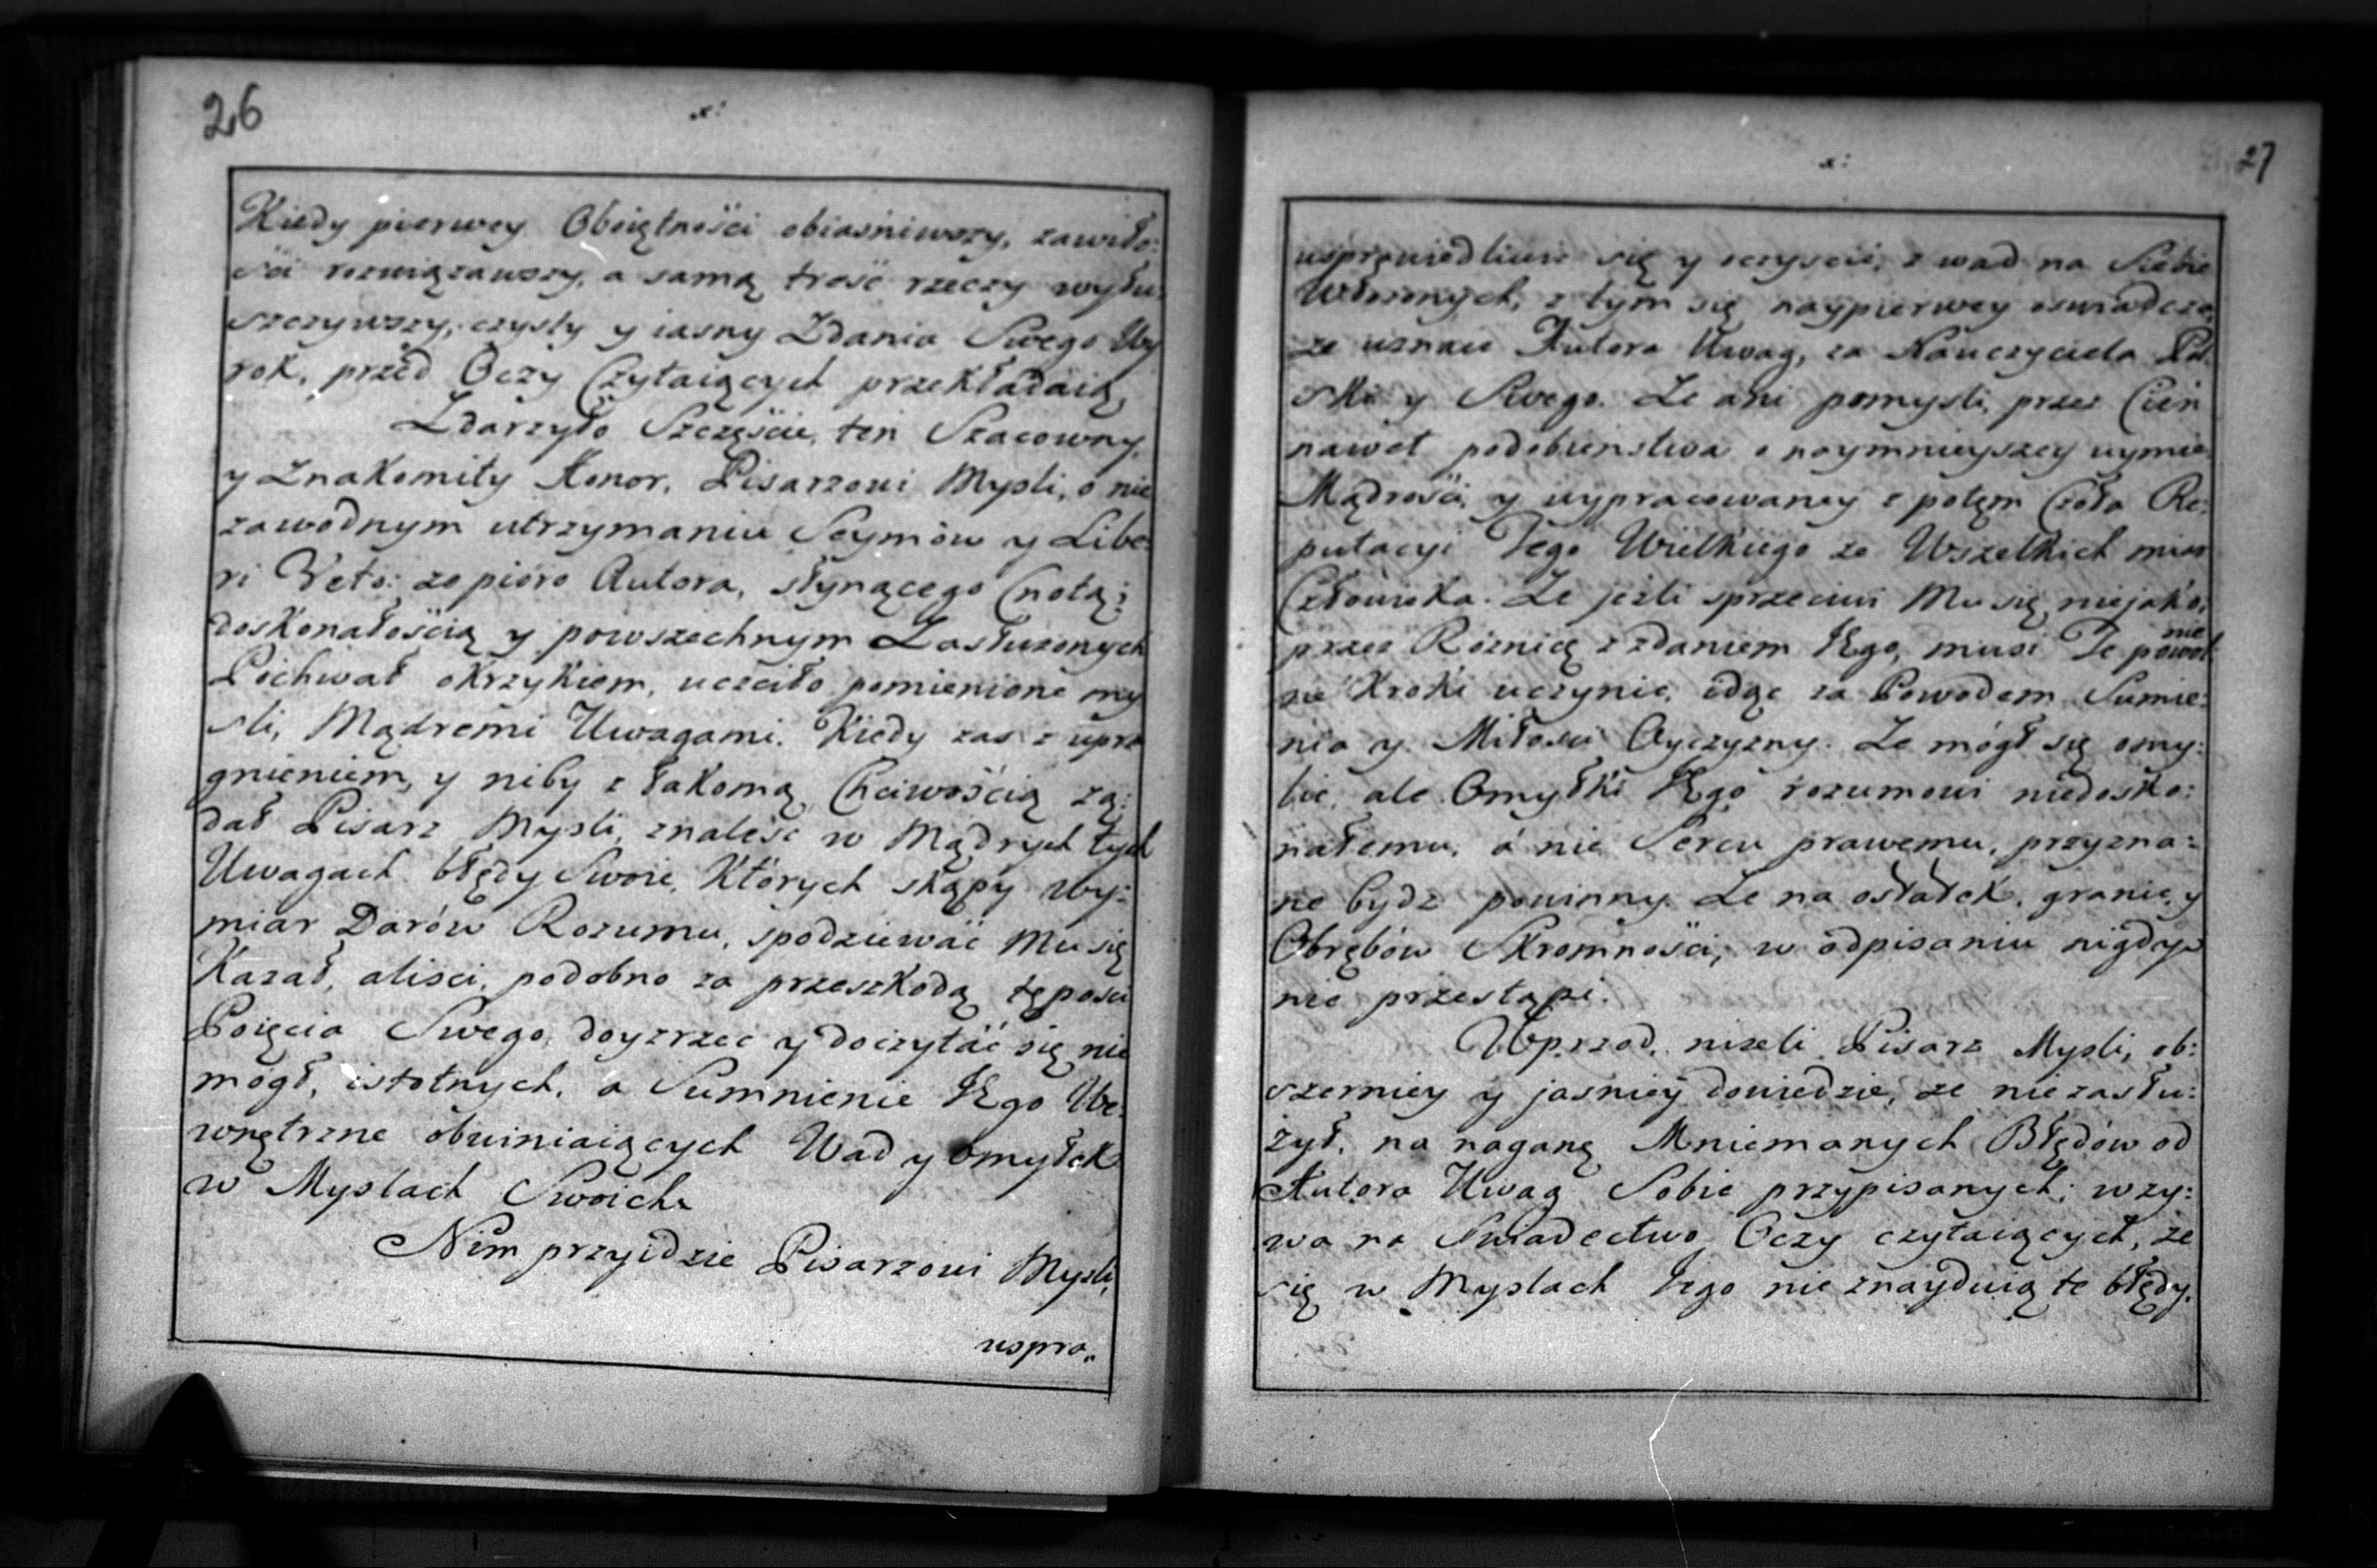 26
x:
Kiedy pierwey Oboiętności obiaśniwszy, zawiło:
ści rozwiązawszy, a samą treść rzeczy wyłu:
szczywszy, czysty y iasny Zdania Swego Wy
rok, przed Oczy Czytaiących przekładaią,
Zdarzyło Szczęście, ten Szacowny,
y Znakomity Honor, Pisarzowi Mysli, o nie
zawodnym utrzymaniu Seymów y Libe:
ri Veto: ze pióro Autora, słynącego Cnotą;
doskonałością y powszechnym Zasłużonych
Pochwał okrzykiem, uczciło pomienione my
sli, Mądremi Uwagami. Kiedy zas z upra
gnieniem, y niby z łakomą Chciwością żą:
dał Pisarz Mysli, znaleść w Mądrych tych
Uwagach błędy Swoie, Których skąpy wy:
miar Darów Rozumu, spodziewać Mu się
Kazał, alisci, podobno za przeszkodą tęposci
Poięcia Swego, doyzrzec y doczytać się nie
mogł, istotnych, a Sumnienie Jego We:
wnętrzne obwiniaiących Wad y Omyłek
w Myslach Swoich.
Nim przyidzie Pisarzowi Mysli,
uspra„
27
x:
usprawiedliwić się y oczyscić, z wad na Siebie
Włożonych, z tym się naypierwey oswiadcza,
że uznaie Autora Uwag, za Nauczyciela Pol:
ski y Swego. Że ani pomysli, przez Cień
nawet podobieństwa o naymnieyszey uymie
Mądrości, y wypracowaney z potęm Czoła Re:
putacyi Tego Wielkiego ze Wszelkich miar
Człowieka. Że jeżli sprzeciwi Mu się niejako,
przez Różnicę z zdaniem Jego, musi Te powol
nie
ne Kroki uczynić, idąc za Powodem Sumie:
nia y Miłosci Oyczyzny. Że mógł się omy:
lić, ale Omyłki Jego rozumowi niedosko:
nałemu, a nie Sercu prawemu, przyzna:
ne bydz powinny. Że na ostatek, granic, y
Obrębów Skromności, w odpisaniu nigdy
nie przestąpi.
Wprzod, nizeli Pisarz Mysli, ob:
szerniey y jasniey dowiedzie, ze nie zasłu:
żył, na naganę Mniemanych Błędów od
Autora Uwag Sobie przypisanych; wzy:
wa na Swiadectwo Oczy czytaiących, że
się w Myslach Jego nie znayduią te błędy.